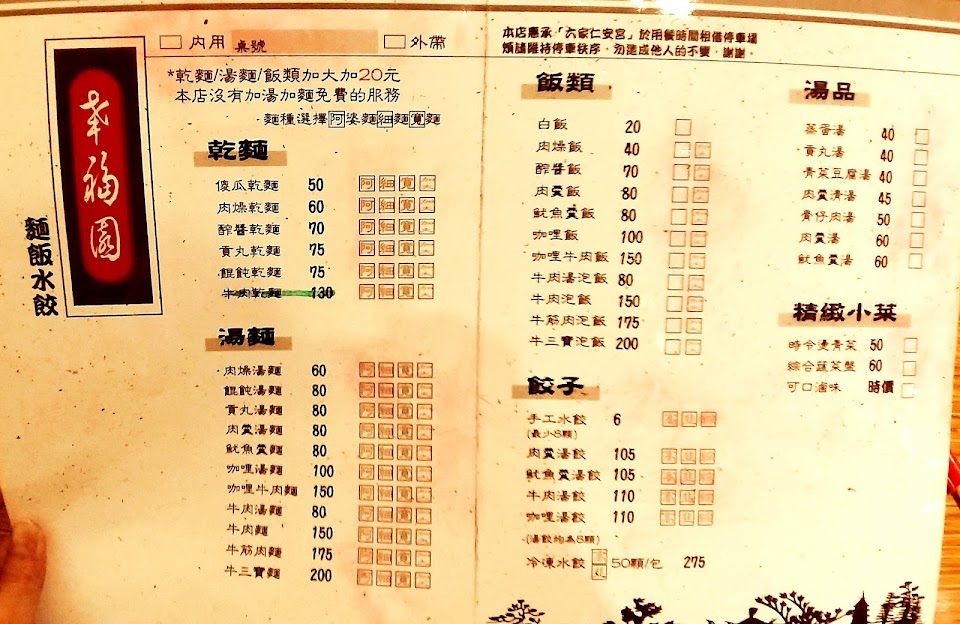 幸福園
麵飯水餃
內用 桌號 外帶
*乾麵/湯麵/飯類加大加20元
本店沒有加湯加麵免費的服務
麵種選擇阿婆麵細麵寬麵
乾麵
傻瓜乾麵 50 阿 細 寬
肉燥乾麵 60 阿 細 寬
酢醬乾麵 70 阿 細 寬
貢丸乾麵 75 阿 細 寬
餛飩乾麵 75 阿 細 寬
牛肉乾麵 130 阿 細 寬
湯麵
肉燥湯麵 60 阿 細 寬
餛飩湯麵 80 阿 細 寬
貢丸湯麵 80 阿 細 寬
肉羹湯麵 80 阿 細 寬
魷魚羹麵 80 阿 細 寬
咖哩湯麵 100 阿 細 寬
咖哩牛肉麵 150 阿 細 寬
牛肉湯麵 80 阿 細 寬
牛肉麵 150 阿 細 寬
牛筋肉麵 175 阿 細 寬
牛三寶麵 200 阿 細 寬
本店惠承「六家仁安宮」於用餐時間租借停車場
煩請維持停車秩序,勿造成他人的不變,謝謝。
飯類
白飯 20
肉燥飯 40
酢醬飯 70
肉羹飯 80
魷魚羹飯 80
咖哩飯 100
咖哩牛肉飯 150
牛肉湯泡飯 80
牛肉泡飯 150
牛筋肉泡飯 175
牛三寶泡飯 200
餃子
手工水餃 6
(最少8顆)
肉羹湯餃 105
魷魚羹湯餃 105
牛肉湯餃 110
咖哩湯餃 110
(湯餃均為8顆)
冷凍水餃 50顆/包 275
湯品
蒸蛋湯 40
貢丸湯 40
青菜豆腐湯 40
肉羹清湯 45
骨仔肉湯 50
肉羹湯 60
魷魚羹湯 60
精緻小菜
時令燙青菜 50
綜合蔬菜盤 60
可口滷味 時價